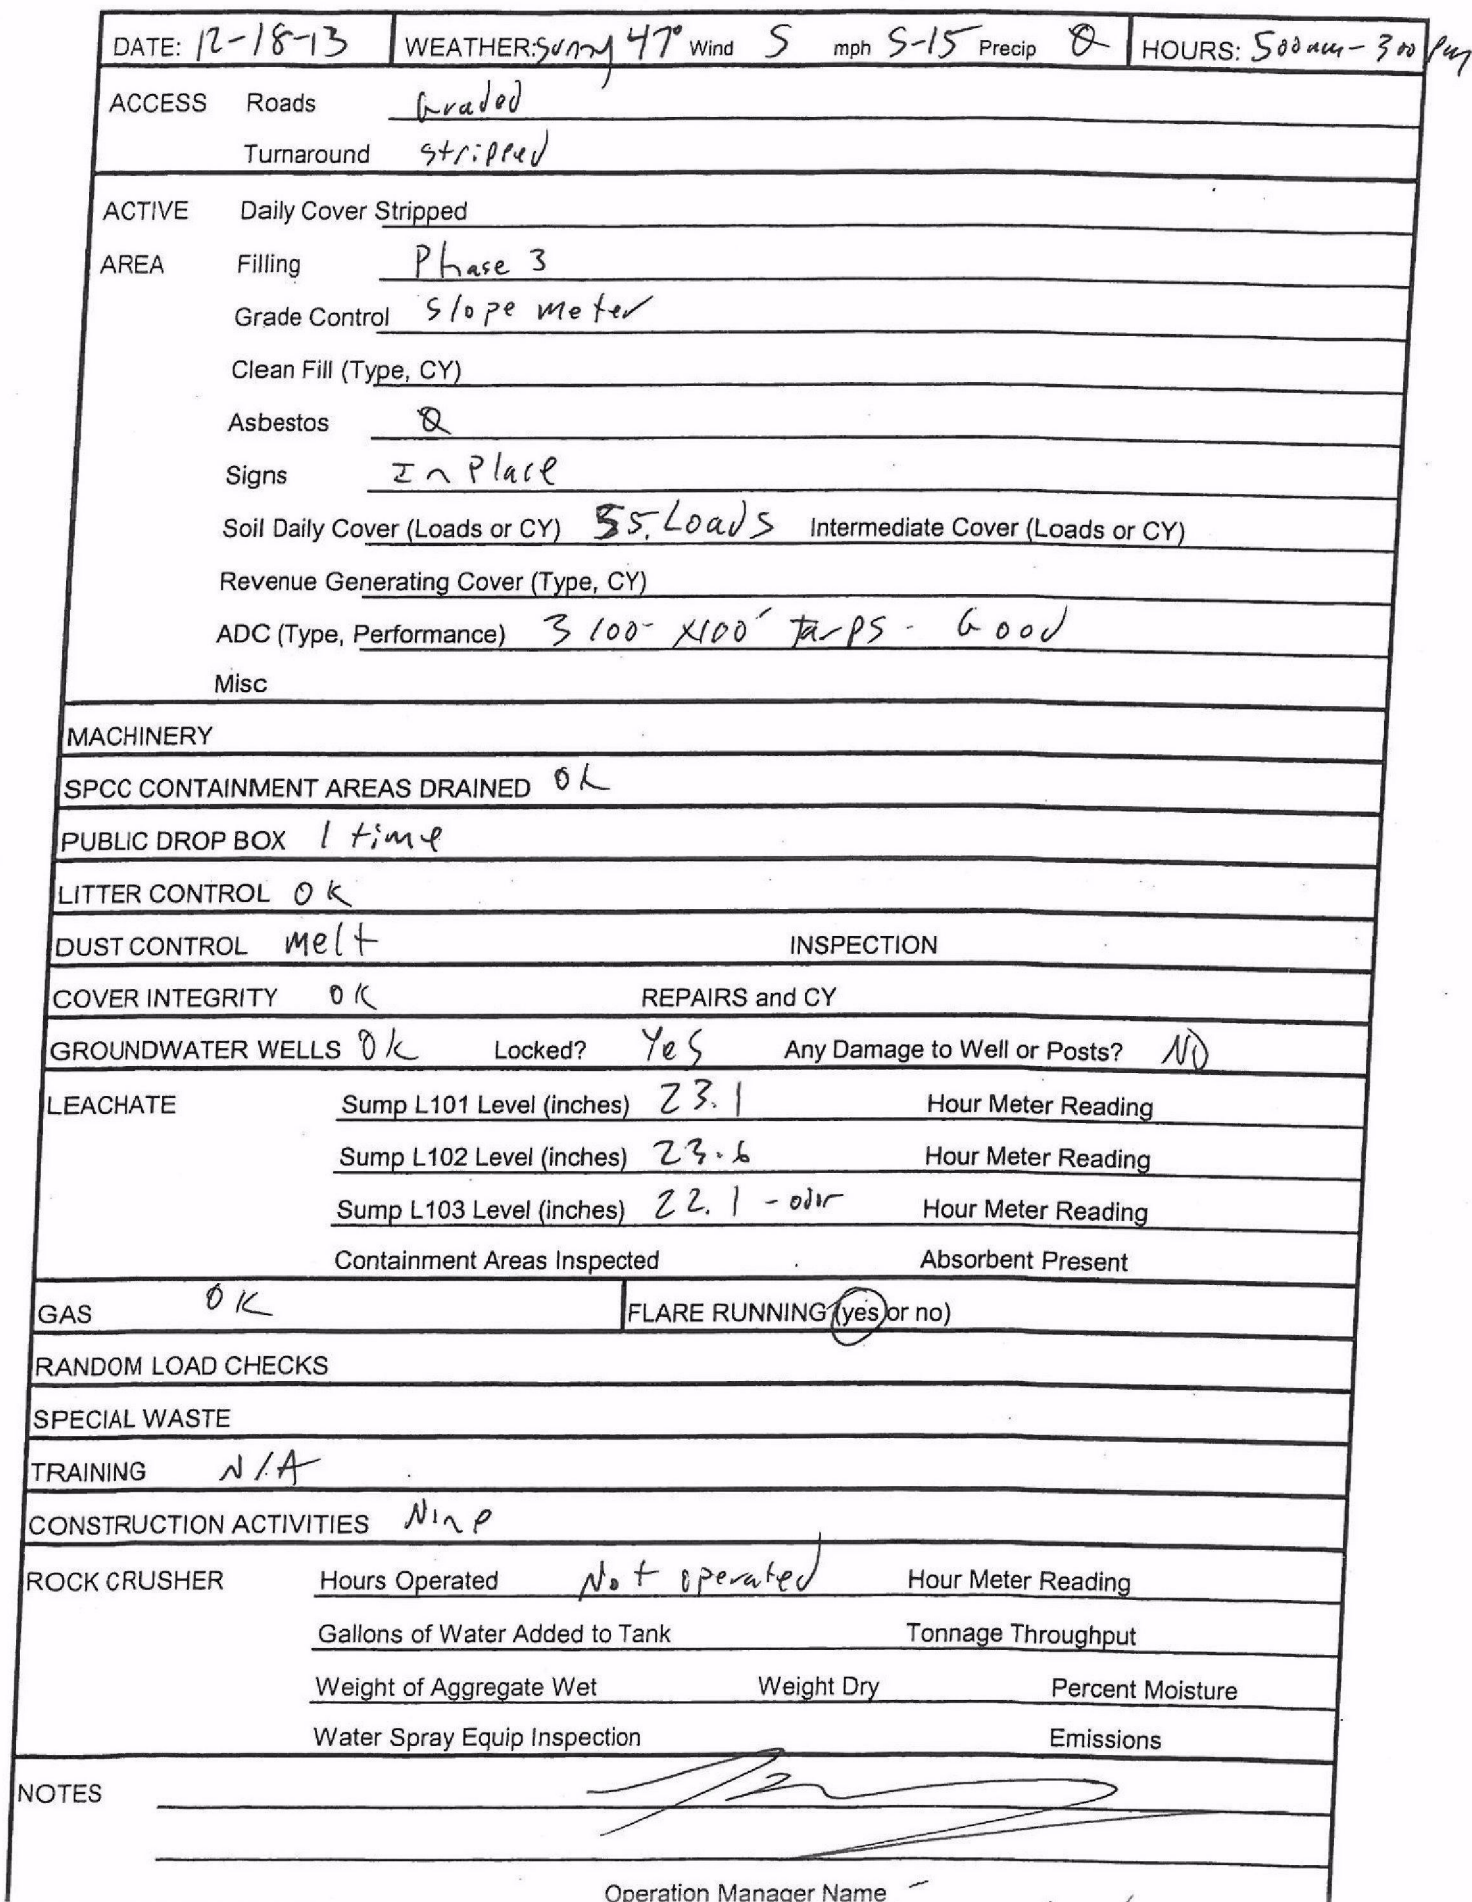 DATE: 12-18-13 WEATHER: Sunny 47° Wind S mph 5-15 Precip 0 HOURS: 500am - 300 pm
ACCESS Roads Graded
Turnaround stripped
ACTIVE Daily Cover Stripped
AREA Filling Phase 3
Grade Control Slope meter
Clean Fill (Type, CY)
Asbestos 0
Signs In Place
Soil Daily Cover (Loads or CY) 55. Loads Intermediate Cover (Loads or CY)
Revenue Generating Cover (Type, CY)
ADC (Type, Performance) 3 100' x100' Tarps - Good
Misc
MACHINERY
SPCC CONTAINMENT AREAS DRAINED OK
PUBLIC DROP BOX 1 time
LITTER CONTROL OK
DUST CONTROL melt INSPECTION
COVER INTEGRITY OK REPAIRS and CY
GROUNDWATER WELLS OK Locked? Yes Any Damage to Well or Posts? NO
LEACHATE Sump L101 Level (inches) 23.1 Hour Meter Reading
Sump L102 Level (inches) 23.6 Hour Meter Reading
Sump L103 Level (inches) 22.1 - odor Hour Meter Reading
Containment Areas Inspected Absorbent Present
GAS OK FLARE RUNNING (yes or no)
RANDOM LOAD CHECKS
SPECIAL WASTE
TRAINING N/A
CONSTRUCTION ACTIVITIES None
ROCK CRUSHER Hours Operated Not operated Hour Meter Reading
Gallons of Water Added to Tank Tonnage Throughput
Weight of Aggregate Wet Weight Dry Percent Moisture
Water Spray Equip Inspection Emissions
NOTES
Operation Manager Name